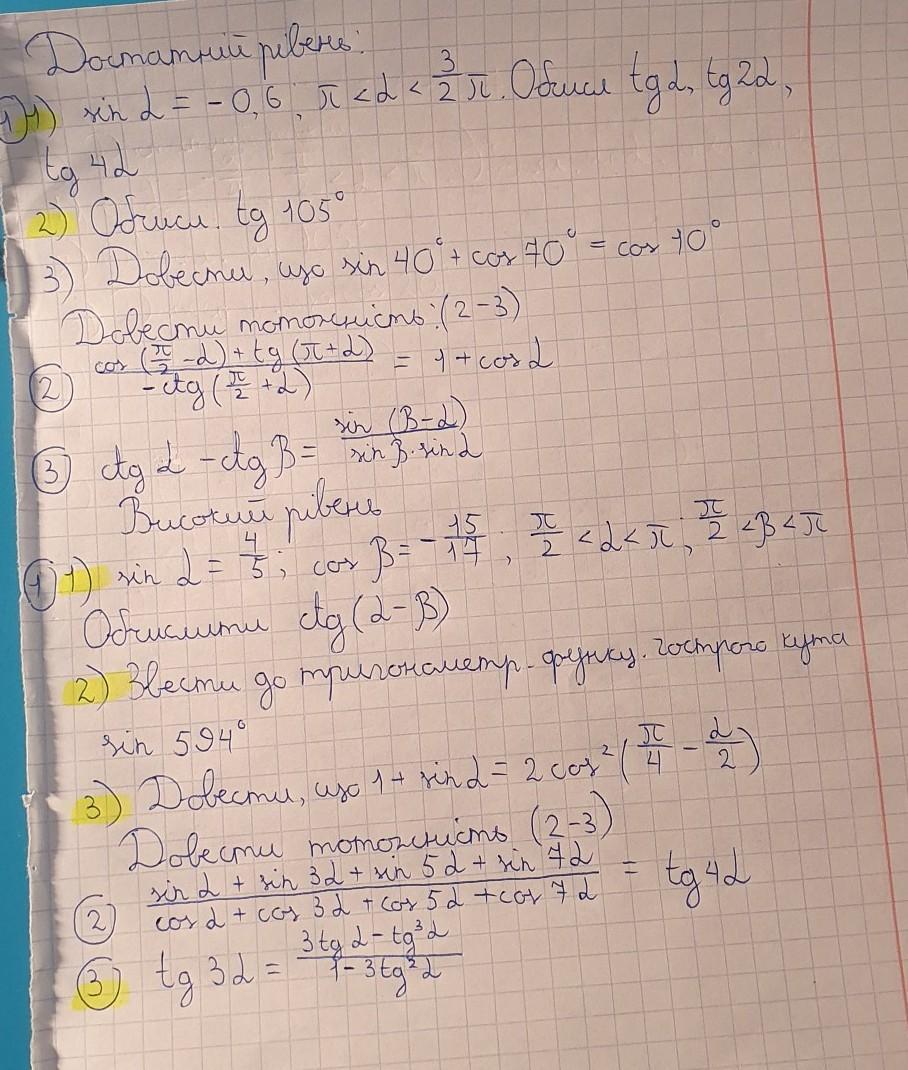 Достатній рівень:
1) 1) sin α = -0,6; π < α < 3/2 π. Обчисл tg α, tg 2α,
tg 4α
2) Обчисл. tg 105°
3) Довести, що sin 40° + cos 70° = cos 10°
Довести тотожність: (2-3)
② (cos (π/2 - α) + tg (π + α)) / (-ctg (π/2 + α)) = 1 + cos α
③ ctg α - ctg β = sin (β - α) / (sin β · sin α)
Високий рівень
① 1) sin α = 4/5; cos β = -15/17; π/2 < α < π; π/2 < β < π
Обчислити ctg (α - β)
2) Звести до тригонометр. функц. гострого кута
sin 594°
3) Довести, що 1 + sin α = 2 cos² (π/4 - α/2)
Довести тотожність (2-3)
② (sin α + sin 3α + sin 5α + sin 7α) / (cos α + cos 3α + cos 5α + cos 7α) = tg 4α
③ tg 3α = (3 tg α - tg³ α) / (1 - 3 tg² α)